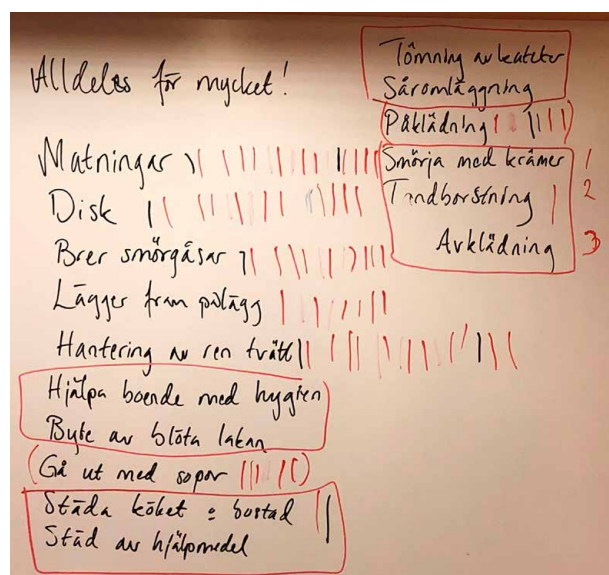 Alldeles för mycket!
Matningar
Disk
Brer smörgåsar
Lägger fram pålägg
Hantering av ren tvätt
Hjälpa boende med hygien
Byte av blöta lakan
(Gå ut med sopor)
Städa köket o bostad
Städ av hjälpmedel
Tömning av kateter
Såromläggning
(Påklädning)
Smörja med krämer 1
Tandborstning 2
Avklädning 3